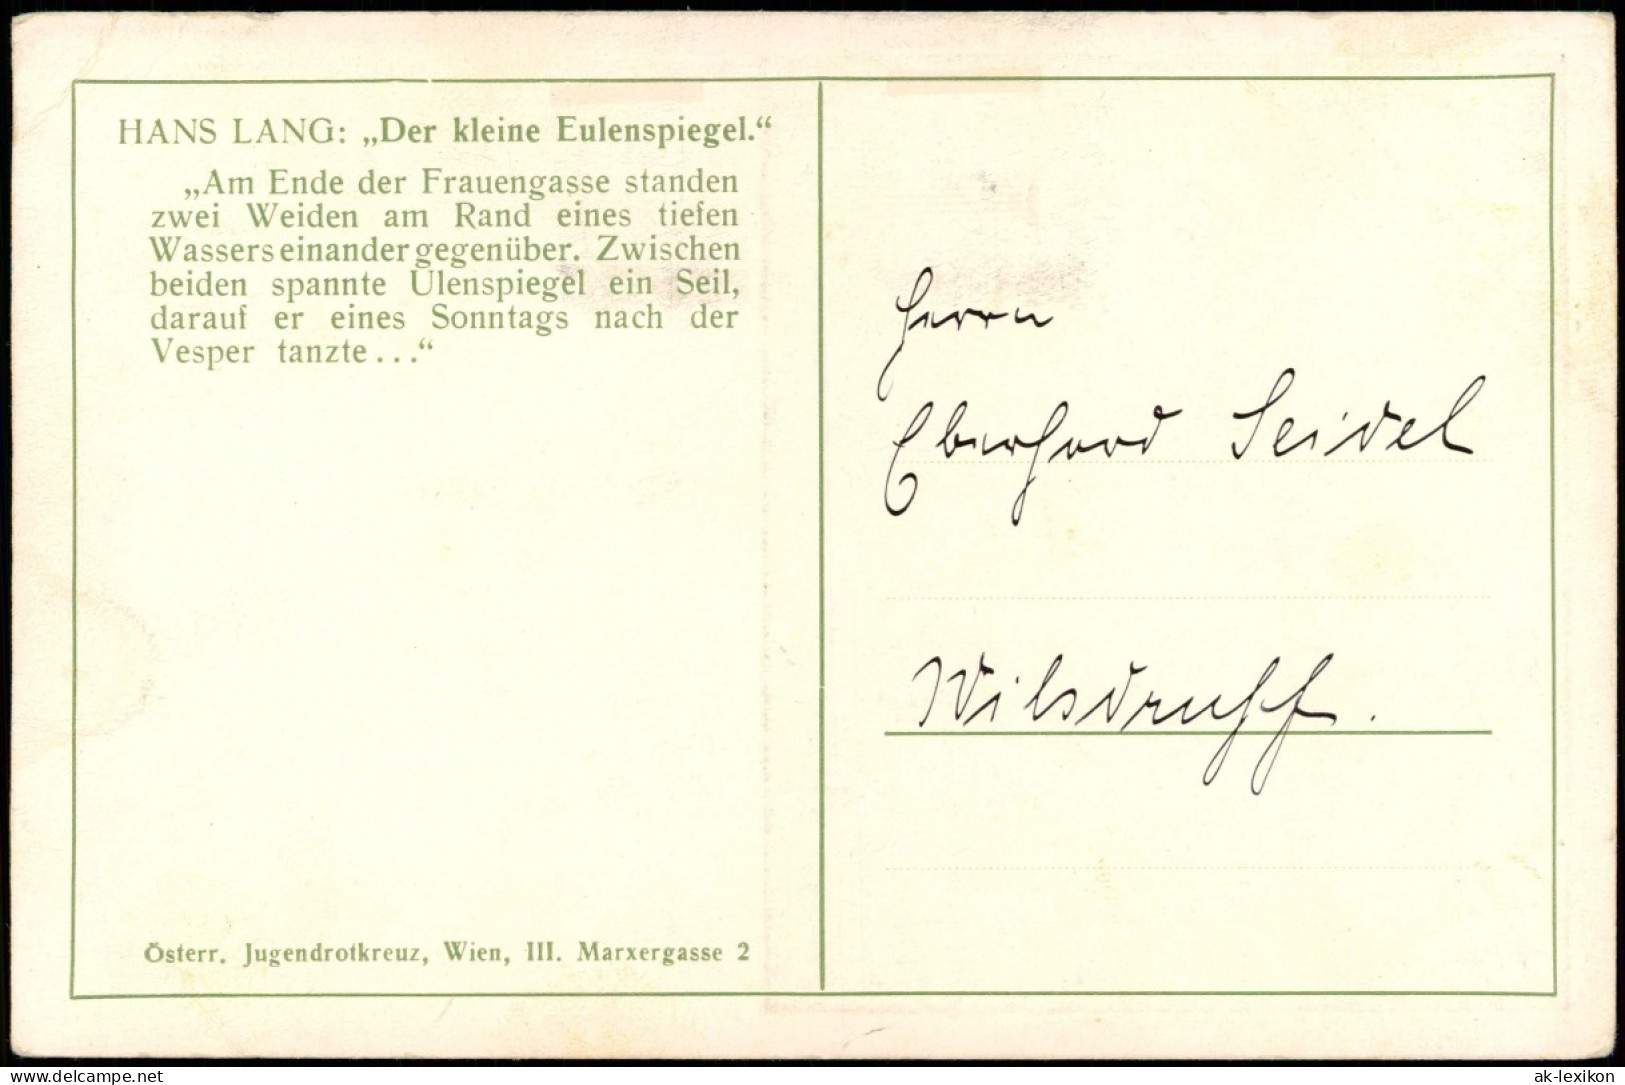 HANS LANG: „Der kleine Eulenspiegel.“
„Am Ende der Frauengasse standen
zwei Weiden am Rand eines tiefen
Wassers einander gegenüber. Zwischen
beiden spannte Ulenspiegel ein Seil,
darauf er eines Sonntags nach der
Vesper tanzte ...“
Österr. Jugendrotkreuz, Wien, III. Marxergasse 2
Herrn
Eberhard Seidel
Wilsdruff.
www.delcampe.net
ak-lexikon